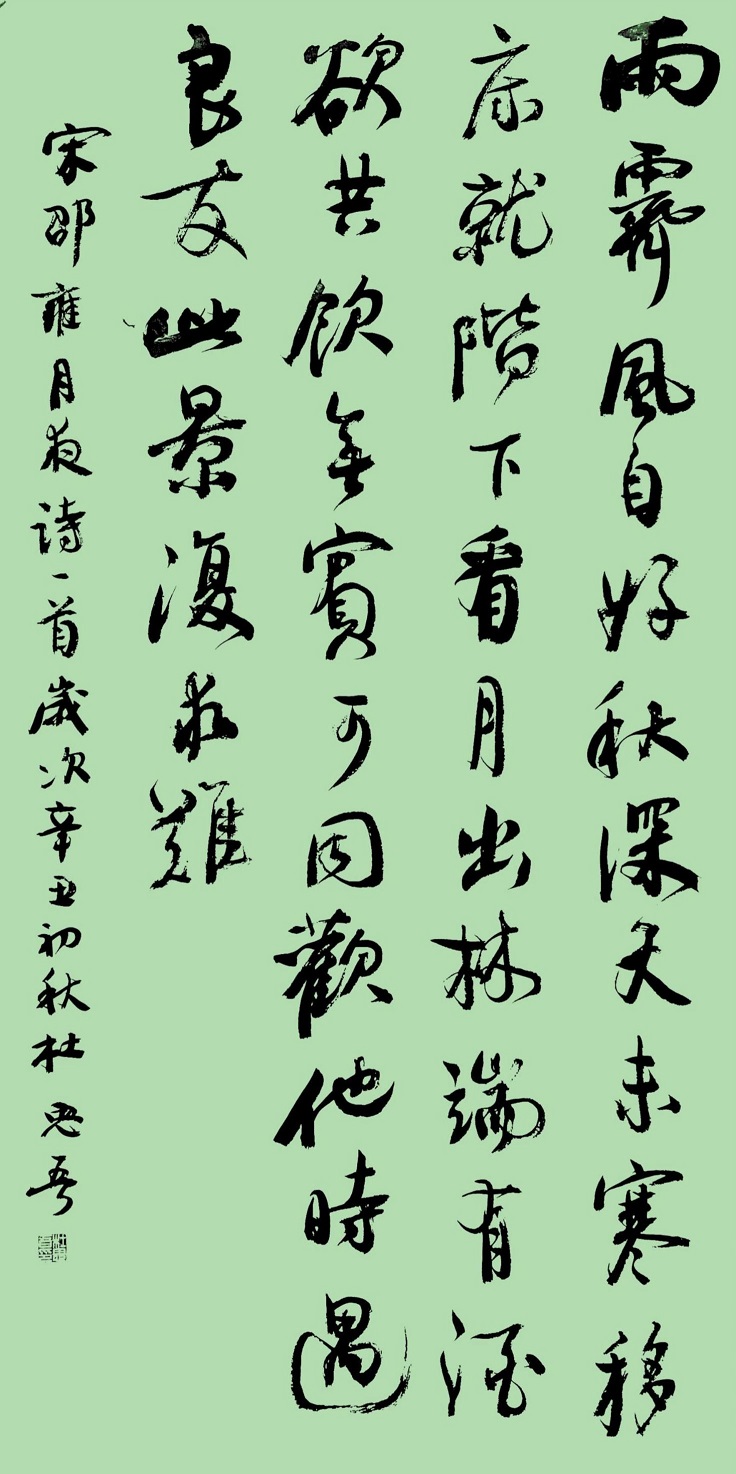 雨霽風自好秋深天未寒移
床就階下看月出林端有酒
欲共飲無賓可同歡他時遇
良友此景復求難
宋邵雍月夜詩一首歲次辛丑初秋杜思吾